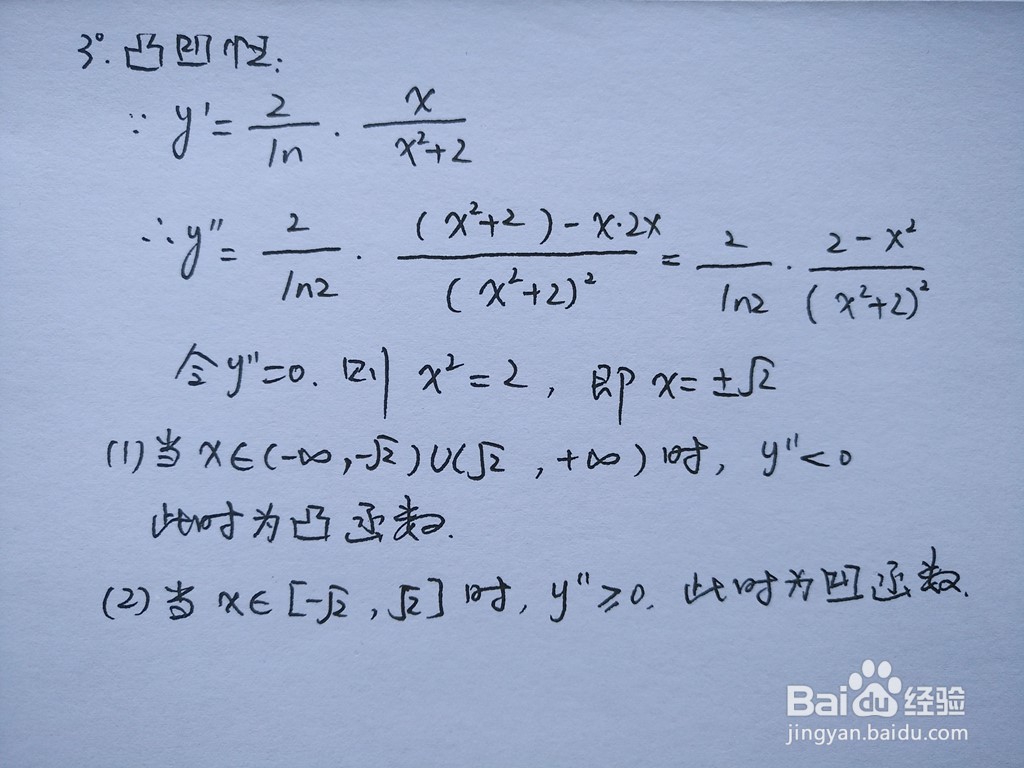 3°. 凸凹性:
∵ y' = 2/ln · x/(x²+2)
∴ y'' = 2/ln2 · ((x²+2)-x·2x)/(x²+2)² = 2/ln2 · (2-x²)/(x²+2)²
令y''=0. 则 x²=2, 即 x=±√2
(1)当 x∈(-∞,-√2)∪(√2,+∞)时, y''<0
此时为凸函数.
(2)当 x∈[-√2,√2]时, y''≥0. 此时为凹函数.
Baidu经验
jingyan.baidu.com